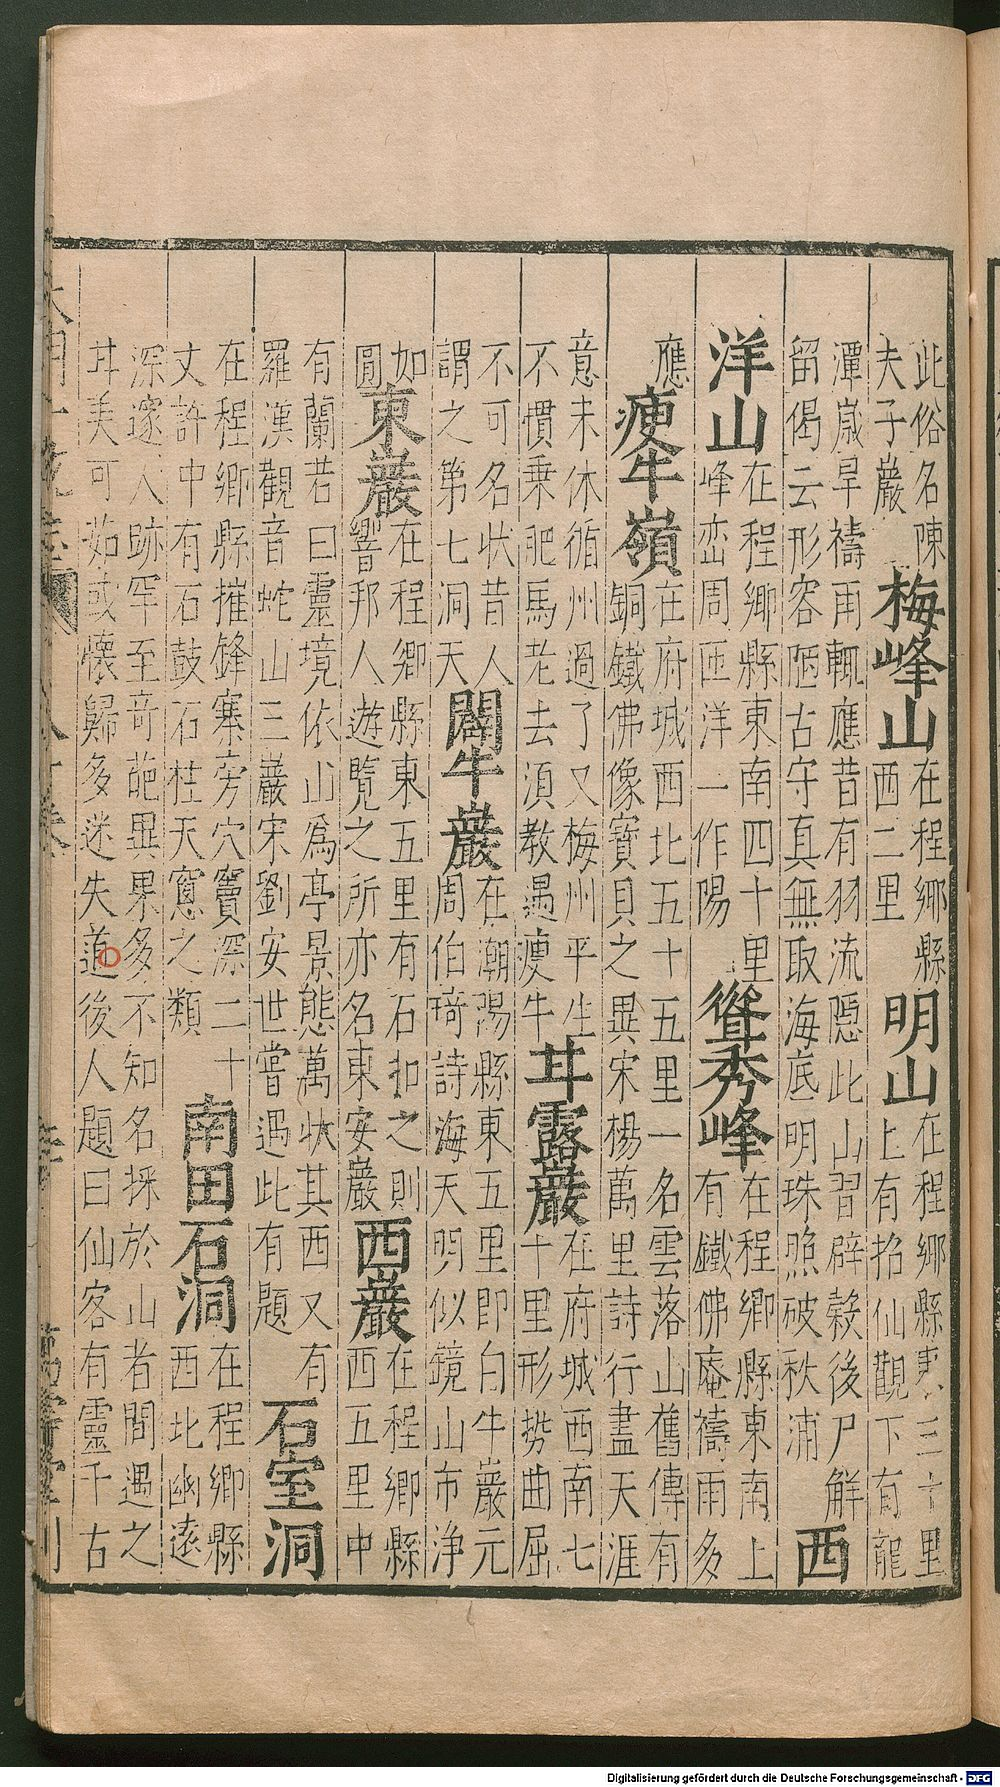 此俗名陳
夫子巖
梅峰山
在程鄉縣
西二里
明山
在程鄉縣東三十里
上有招仙觀下有龍
潭歲旱禱雨輒應昔有羽流隱此山習辟穀後尸解
留偈云形容陋古守真無取海底明珠照破秋浦
西
洋山
在程鄉縣東南四十里
峰巒周匝洋一作陽
聳秀峰
在程鄉縣東南上
有鐵佛庵禱雨多
應
瘦牛嶺
在府城西北五十五里一名雲落山舊傳有
銅鐵佛像寶貝之異宋楊萬里詩行盡天涯
意未休循州過了又梅州平生
不慣乗肥馬老去須教遇瘦牛
甘露巖
在府城西南七
十里形勢曲屈
不可名狀昔人
謂之第七洞天
闊牛巖
在潮陽縣東五里即白牛巖元
周伯琦詩海天明似鏡山市浄
如
圓
東巖
在程鄉縣東五里有石扣之則
響邦人遊覽之所亦名東安巖
西巖
在程鄉縣
西五里中
有蘭若曰靈境依山為亭景態萬狀其西又有
羅漢觀音蛇山三巖宋劉安世嘗遇此有題
石室洞
在程鄉縣摧鋒寨旁穴竇深二十
丈許中有石鼓石柱天窗之類
南田石洞
在程鄉縣
西北幽遠
深邃人跡罕至奇葩異果多不知名採於山者間遇之
甘美可茹或懷歸多迷失道後人題曰仙客有靈千古
Digitalisierung gefördert durch die Deutsche Forschungsgemeinschaft - DFG